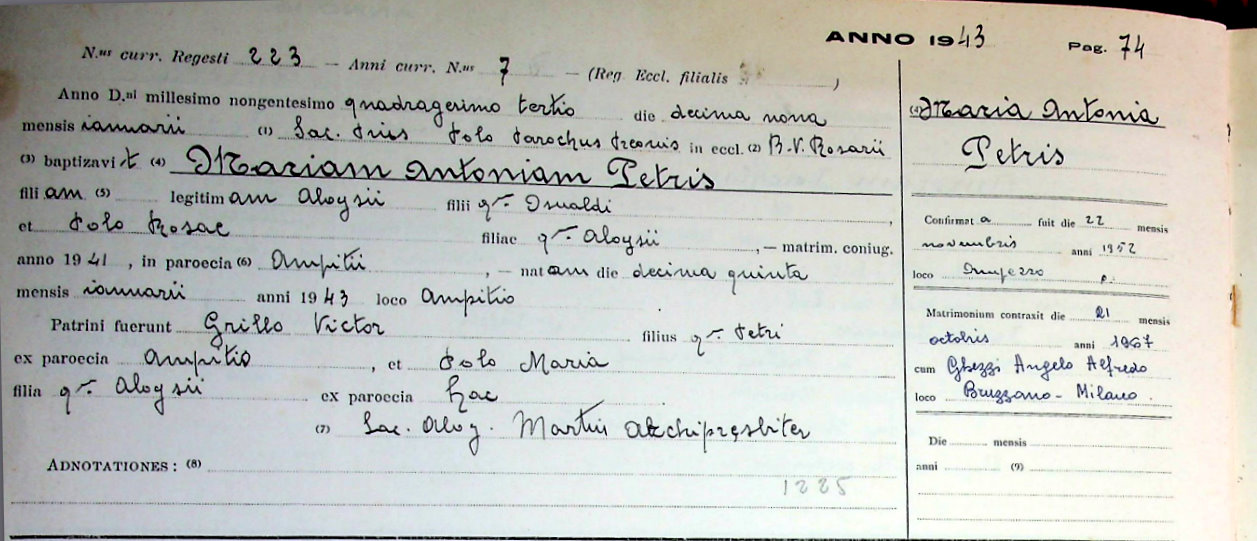 ANNO 1943 Pag. 74
N.us curr. Regesti 223 — Anni curr. N.us 7 — (Reg Eccl. filialis )
Anno D.ni millesimo nongentesimo quadragesimo tertio die decima nona
mensis ianuarii (1) Sac. Polo Parochus in eccl. (2) B.V. Rosarii
(3) baptizavit (4) Mariam Antoniam Petris
filiam (5) legitimam Aloysii filii qr. Osualdi,
et Polo Rosae filiae qr. Aloysii, — matrim. coniug.
anno 1941, in paroecia (6) Ampitii, — natam die decima quinta
mensis ianuarii anni 1943 loco Ampitio
Patrini fuerunt Grillo Victor filius qr. Petri
ex paroecia Ampitio, et Polo Maria
filia qr. Aloysii ex paroecia hac
(7) Sac. Aloy. Martin archipresbiter
ADNOTATIONES: (8)
1225
(4) Maria Antonia
Petris
Confirmata fuit die 22 mensis
novembris anni 1952
loco Ampezzo
Matrimonium contraxit die 21 mensis
octobris anni 1967
cum Ghezzi Angelo Alfredo
loco Bruzzano - Milano.
Die mensis
anni (9)